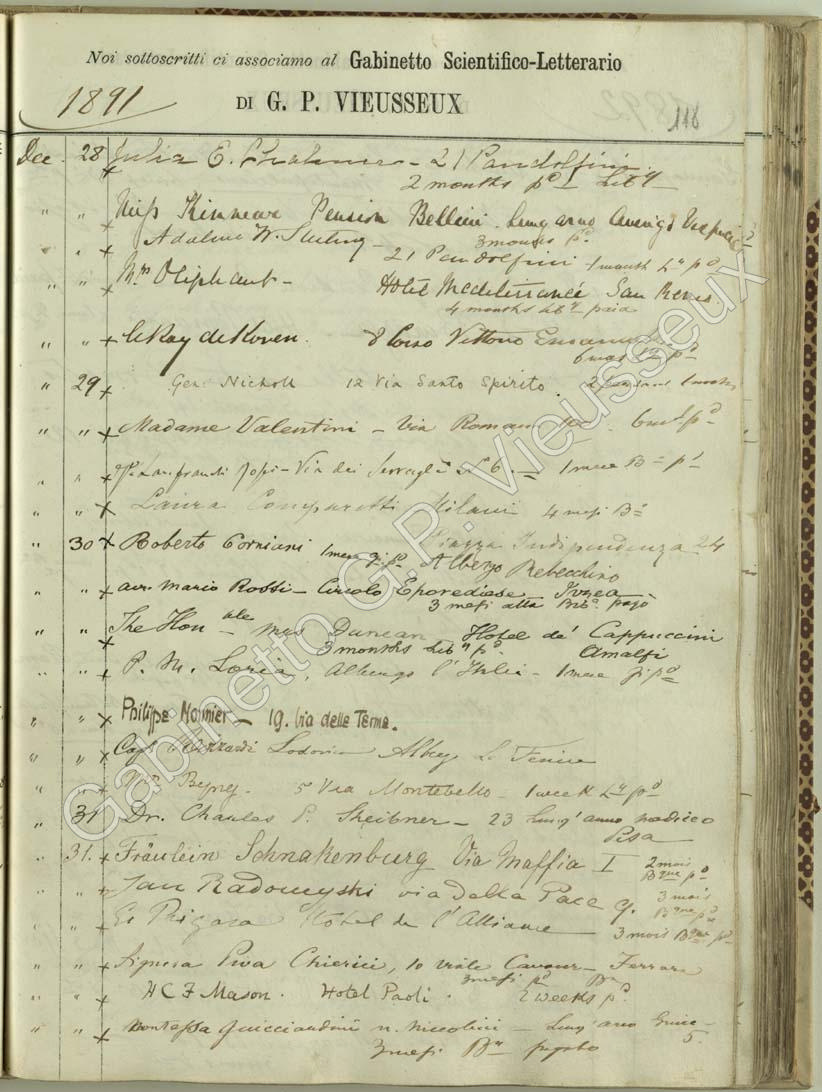 Noi sottoscritti ci associamo al Gabinetto Scientifico-Letterario
1891 DI G. P. VIEUSSEUX 118
Dec. 28 Julia E. - 21 Pandolfini.
2 months pd Liby
" " Miss Kinnear Pension Bellini. Lung'arno Amerigo Vespucci
3 months pd
" Adaline W. Sterling - 21 Pandolfini 1 month Ly pd
" " Mrs Oliphant - Hotel Mediterranée San Remo.
4 months Liby paid
" " x LeRoy de Koven. 8 Corso Vittorio Emanuele
pd
" 29 x Genl Nicholl 12 Via Santo Spirito. 1 month
" " x Madame Valentini - Via Romana pd
" " x - Via dei Serragli No 6. = 1 mese Be pd
" " x Laura Comparetti Milani 4 mesi Be
" 30 x Roberto Corniani Piazza Indipendenza 24
1 mese pd Albergo Rebecchino
" " x avv. Mario Rossi - Circolo Eporediese Ivrea
3 mesi alla Bibca. pagò
" " The Honble Mrs Duncan - Hotel de' Cappuccini
3 months Liby pd. Amalfi
" " x P. M. Loria, Albergo l'Italie - 1 mese pd
" " x Philippe Monnier - 19. Via delle Terme.
" " x Lodovico Alberg La Fenice
" " x 5 Via Montebello - 1 week Ly pd
" 31 Dr. Charles P. - 23 Lung'arno mediceo
Pisa
" 31. x Fräulein Schnakenburg Via Maffia I 2 mois
Bque pd
" " x Jan Radomyski via Della Pace 9. 3 mois
Bque pd
" " x Hotel de l'Alliance - 3 mois Bque pd
" " x Signora Piva Chierici, 10 viale Cavour - Ferrara
3 mesi pd
" " x H C F Mason. Hotel Paoli. 2 weeks pd.
" " x Contessa Guicciardini n. Niccolini - Lung'arno Guicc-
5.
3 mesi Be pagato
Gabinetto G.P. Vieusseux